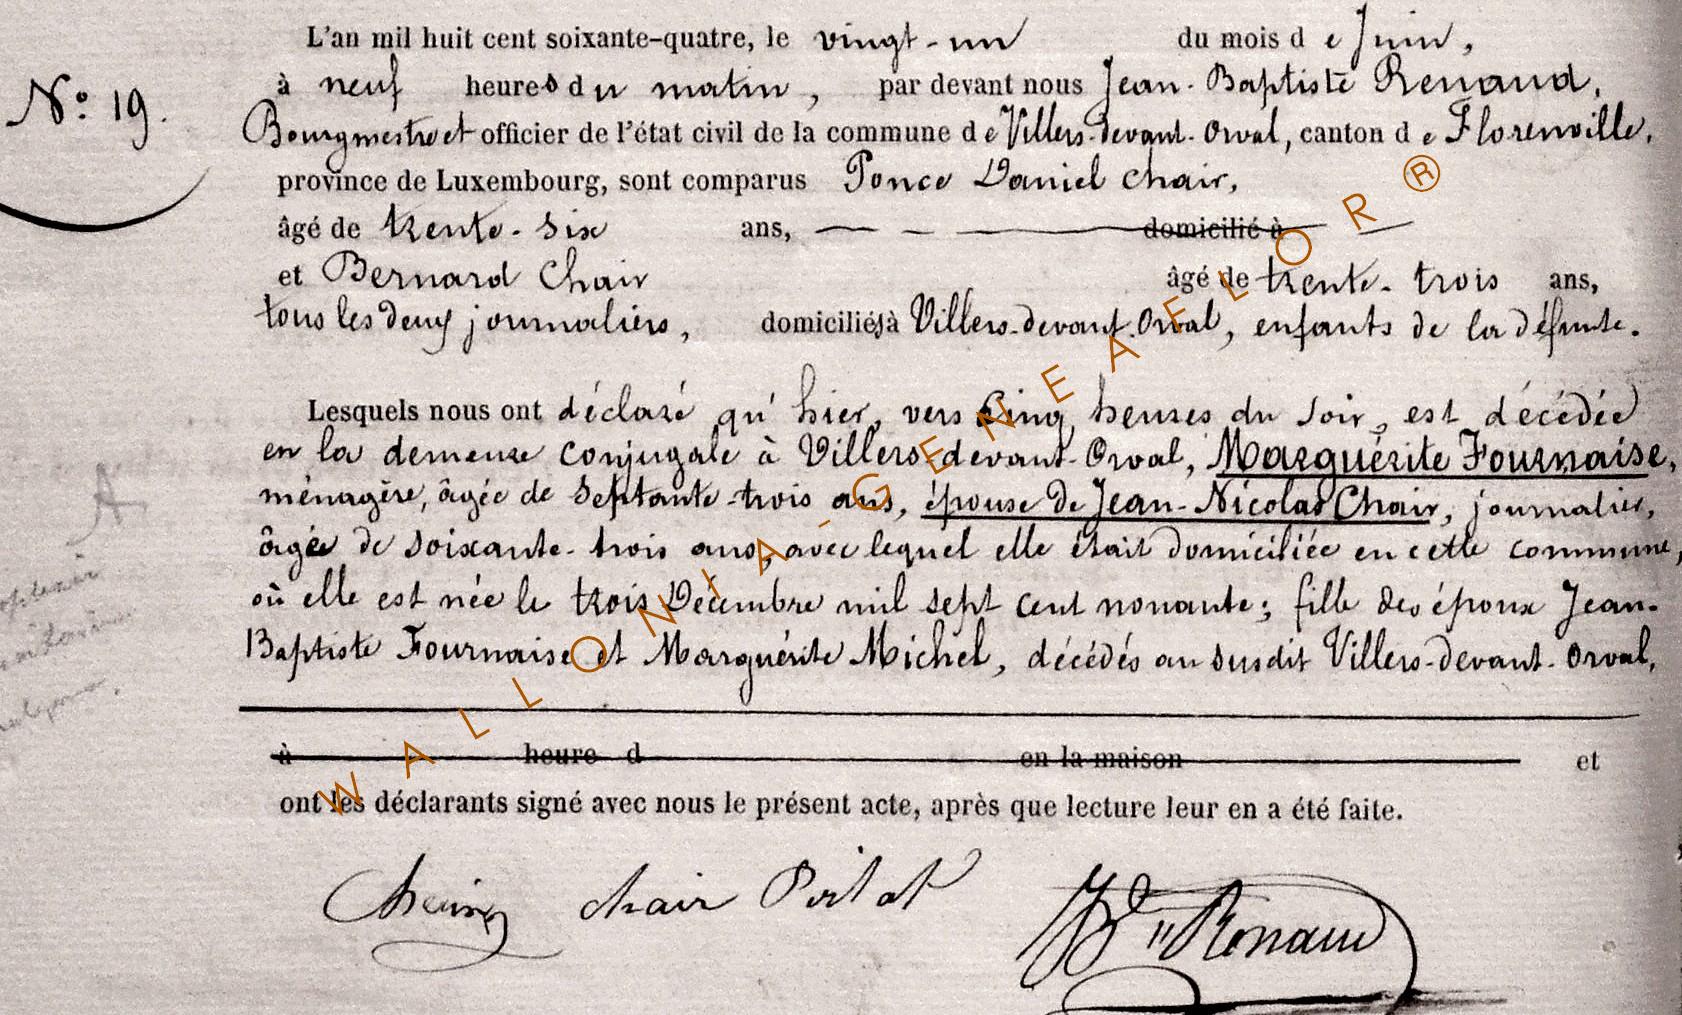 L'an mil huit cent soixante-quatre, le vingt-un du mois de Juin,
à neuf heures du matin, par devant nous Jean-Baptiste Renaud,
N° 19.
Bourgmestre et officier de l'état civil de la commune de Villers-devant-Orval, canton de Florenville,
province de Luxembourg, sont comparus Ponce Daniel Chair,
âgé de trente-six ans, domicilié à
et Bernard Chair âgé de trente-trois ans,
tous les deux journaliers, domiciliés à Villers-devant-Orval, enfants de la défunte.
Lesquels nous ont déclaré qu'hier, vers Cinq heures du soir, est décédée
en la demeure conjugale à Villers-devant-Orval, Marguérite Fournaise,
ménagère, âgée de septante-trois ans, épouse de Jean-Nicolas Chair, journalier,
âgée de soixante-trois ans, avec lequel elle était domiciliée en cette commune,
où elle est née le trois Décembre mil sept cent nonante; fille des époux Jean-
Baptiste Fournaise et Marguérite Michel, décédés au susdit Villers-devant-Orval,
à heure d en la maison et
ont les déclarants signé avec nous le présent acte, après que lecture leur en a été faite.
chair Renaud
WALLONIA-GENEAFLOR®